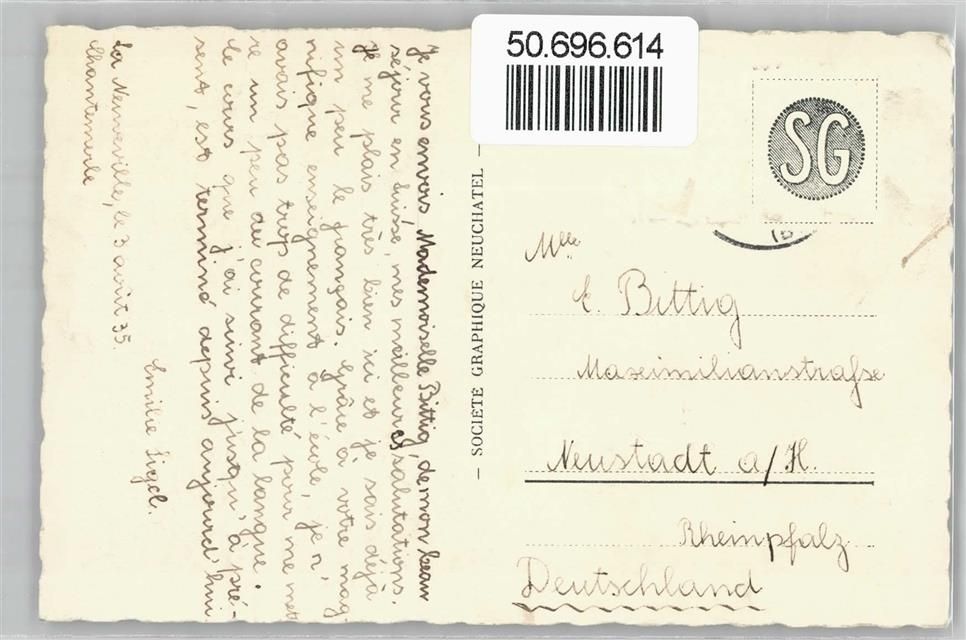 50.696.614
SG
Je vous envois, Mademoiselle Bittig, de mon beau
séjour en Suisse, mes meilleures salutations.
Je me plais très bien ici et je sais déjà
un peu le français. Grâce à votre mag
nifique enseignement à l'école, je n'
avais pas trop de difficulté pour me mett
re un peu au courant de la langue.
Le cours que j'ai suivi jusqu'à pré-
sent, est terminé depuis aujourd'hui.
Emilie
La Neuveville, le 3 août 35.
Chantemerle
- SOCIÉTÉ GRAPHIQUE NEUCHATEL -
Mlle
E. Bittig
Maximilianstrasse
Neustadt a/H.
Rheinpfalz
Deutschland